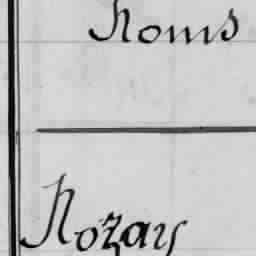 Noms
Nozay